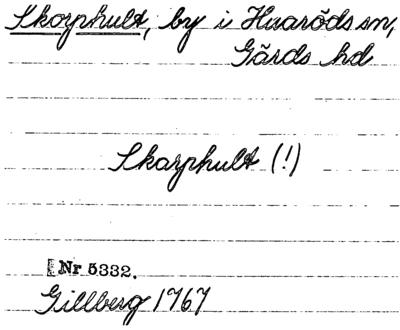 Skorphult, by i Huaröds sn,
Gärds hd
Skarphult (!)
Nr 5332.
Gillberg 1767